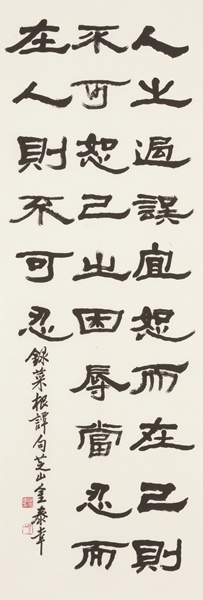 人之過誤宜恕而在己則
不可恕己之困辱當忍而
在人則不可忍
錄菜根譚句芝山金泰